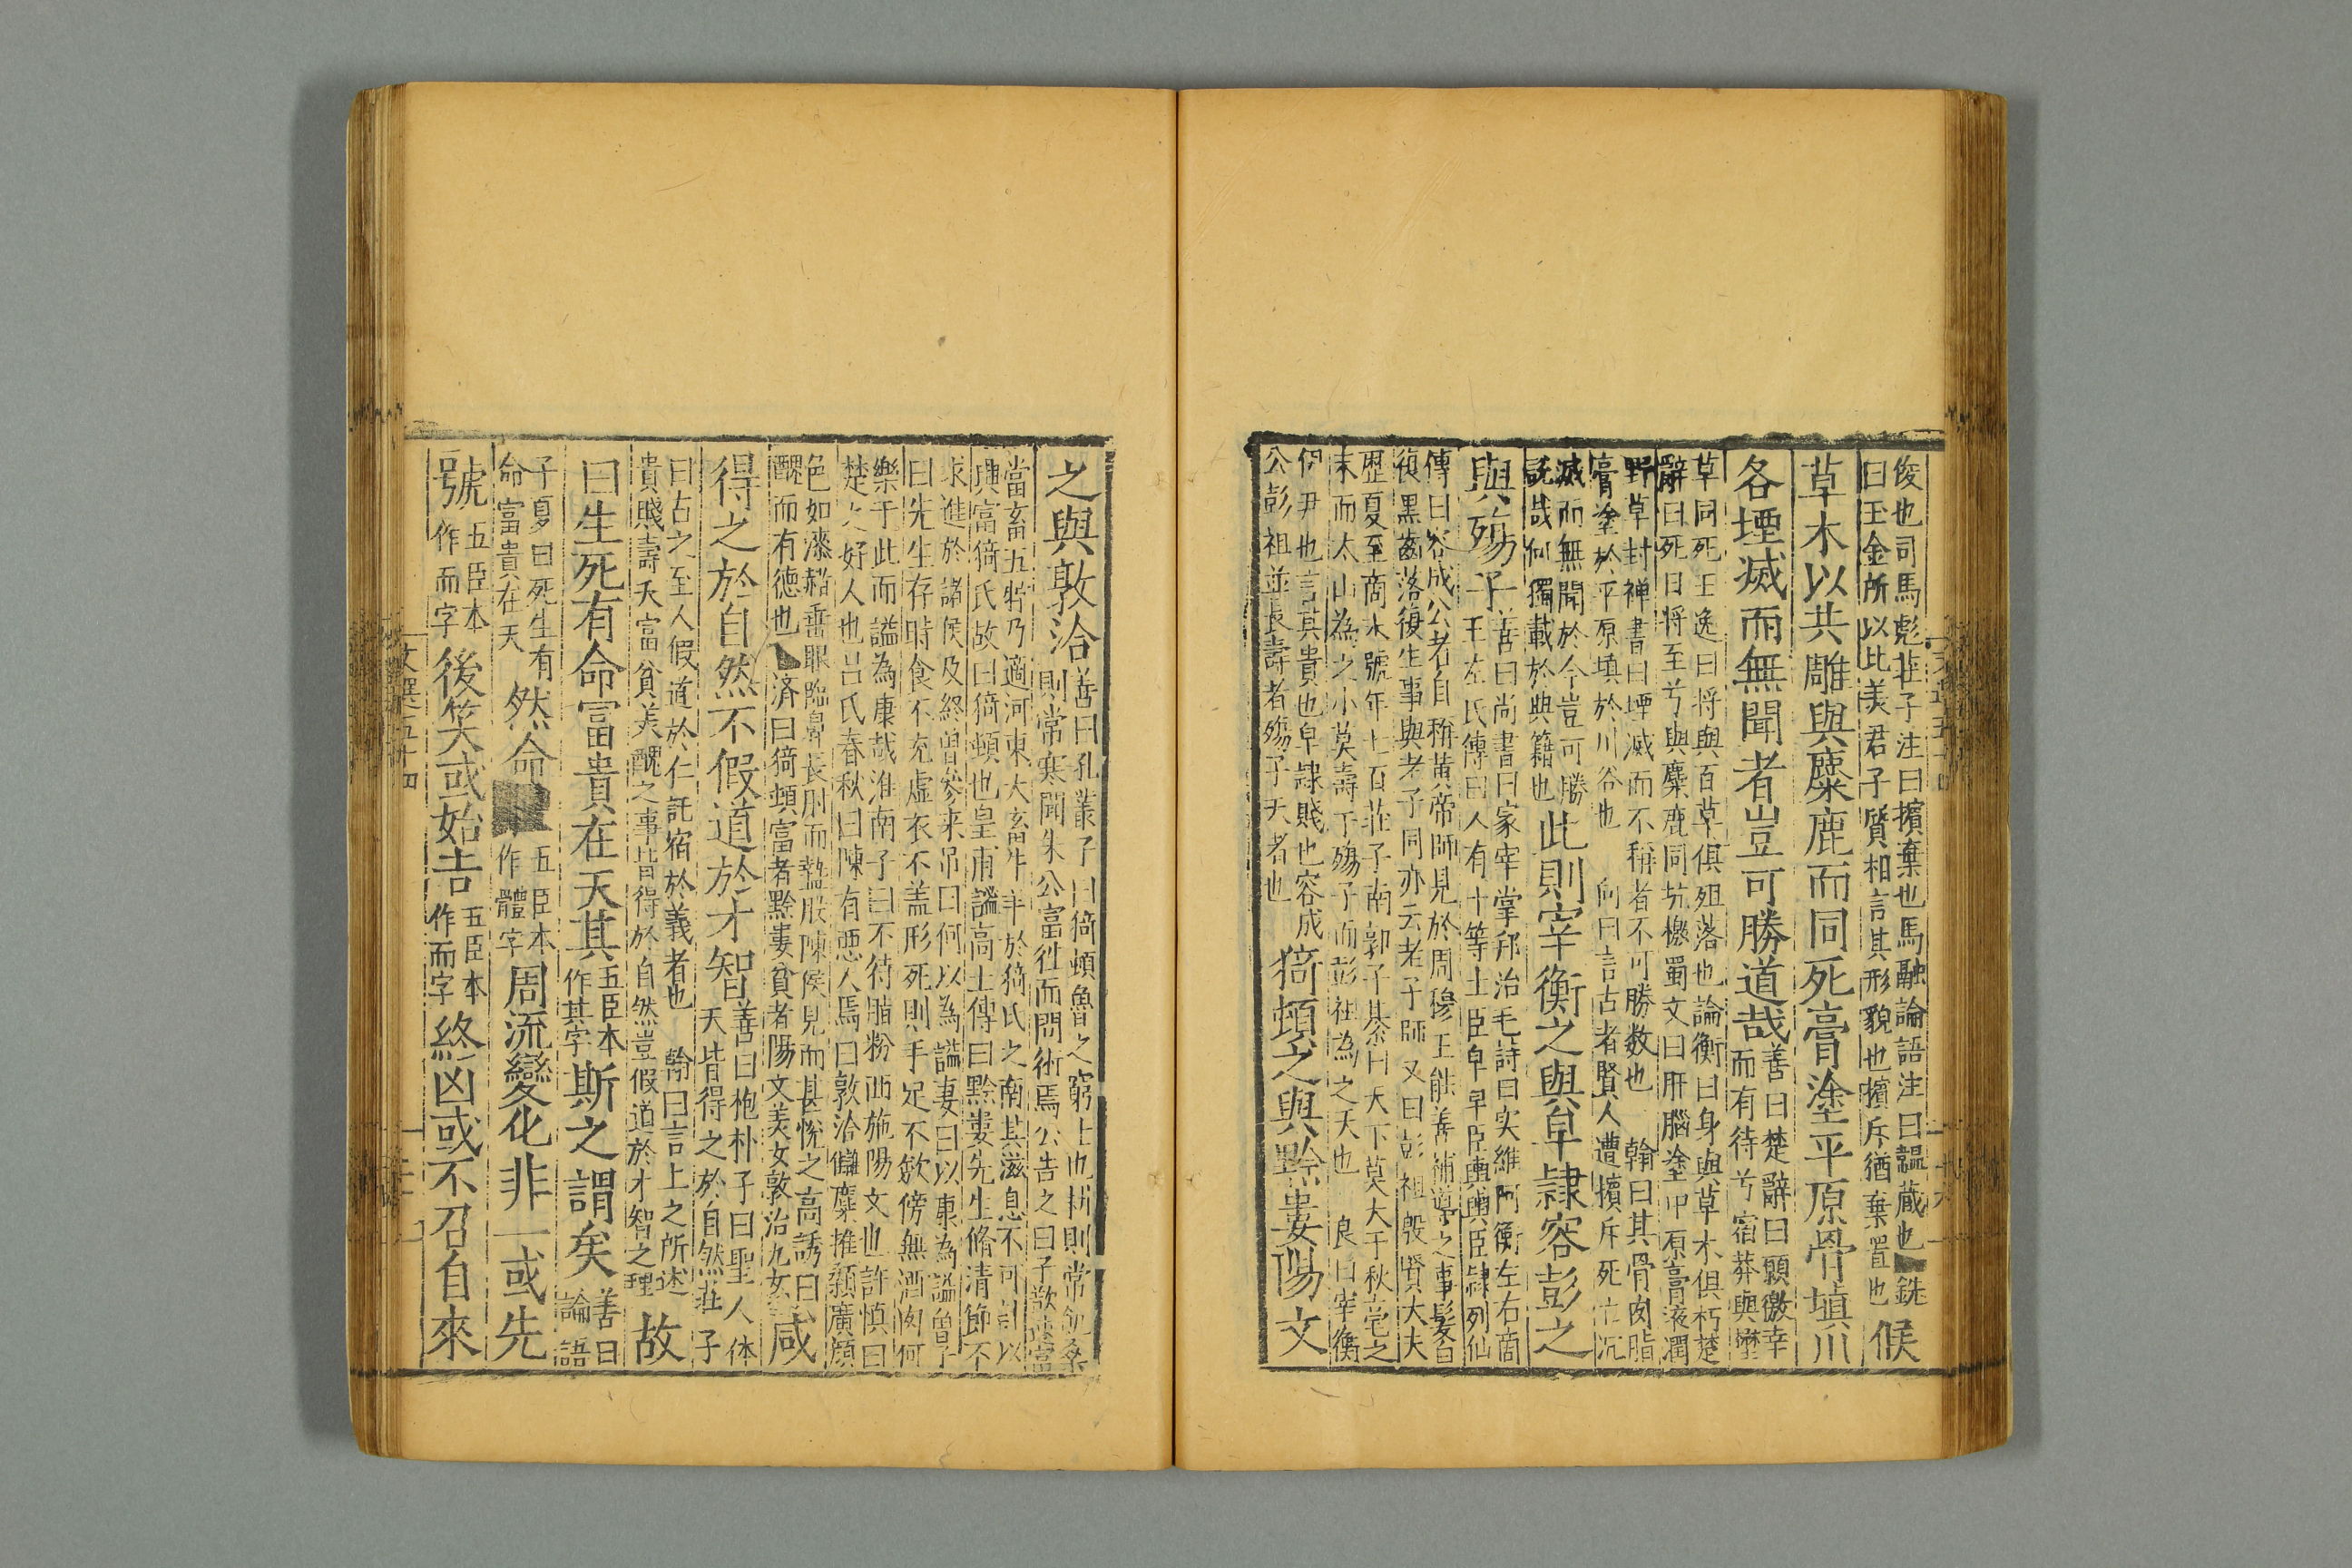 俊也司馬彪莊子注曰擯棄也馬融論語注曰韞蔵也銑
曰玉金所以此美君子質相言其形貌也擯斥猶棄置也
候
草木以共雕與麋鹿而同死膏塗平原骨填川
各堙滅而無聞者豈可勝道哉
善曰楚辭曰願徼幸
而有待兮宿莽與壄
草同死王逸曰将與百草俱殂落也論衡曰身與草木俱朽楚
辭曰死日將至兮與麋鹿同坑檄蜀文曰肝腦塗中原膏液潤
野草封禅書曰堙滅而不稱者不可勝数也 翰曰其骨肉脂
膏塗於平原填於川谷也 向曰言古者賢人遭擯斥死亡沉
滅而無聞於今豈可勝
託哉何獨載於典籍也
此則宰衡之與皁隷容彭之
與殤子
善曰尚書曰家宰掌邦治毛詩曰实維阿衡左右商
王左氏傳曰人有十等士臣皁皁臣輿輿臣隷列仙
傳曰容成公者自稱黄帝師見於周穆王能善補導之事髮白
復黒齒落復生事與老子同亦云老子師 又曰彭祖殷賢大夫
歷夏至商末號年七百莊子南郭子綦曰天下莫大于秋毫之
末而太山為之小莫壽于殤子而彭祖為之夭也 良曰宰衡
伊尹也言其貴也皁隷賤也容成
公彭祖並長壽者殤子夭者也
猗頓之與黔婁陽文
之與敦洽
善曰孔叢子曰猗頓魯之窮士也耕則常飢桑
則常寒聞朱公富徃而問術焉公告之曰子欲速富
當畜五牸乃適河東大畜牛羊於猗氏之南其滋息不可計以
興富猗氏故曰猗頓也皇甫謐高士傳曰黔婁先生脩清節不
求進於諸侯及終曽參来吊曰何以為謚妻曰以康為謚曽子
曰先生存時食不充虛衣不盖形死則手足不歛傍無酒肉何
樂于此而謚為康哉淮南子曰不待脂粉西施陽文也許慎曰
楚之好人也吕氏春秋曰陳有惡人焉曰敦洽讎麋推顙廣顔
色如漆赭垂眼臨鼻長肘而盭股陳侯見而甚悅之高誘曰
醜而有徳也済曰猗頓富者黔婁貧者陽文美女敦洽丸女
咸
得之於自然不假道於才智
善曰枹朴子曰聖人体
天皆得之於自然莊子
曰古之至人假道於仁託宿於義者也 翰曰言上之所述
貴賤壽夭富貧美醜之事皆得於自然豈假道於才智之理
故
曰生死有命富貴在天其
五臣本
作其字
斯之謂矣
善曰
論語
子夏曰死生有
命富貴在天
然命
五臣本
作體字
周流變化非一或先
號
五臣本
作而字
後笑或始吉
五臣本
作而字
終凶或不召自來
文選五十四